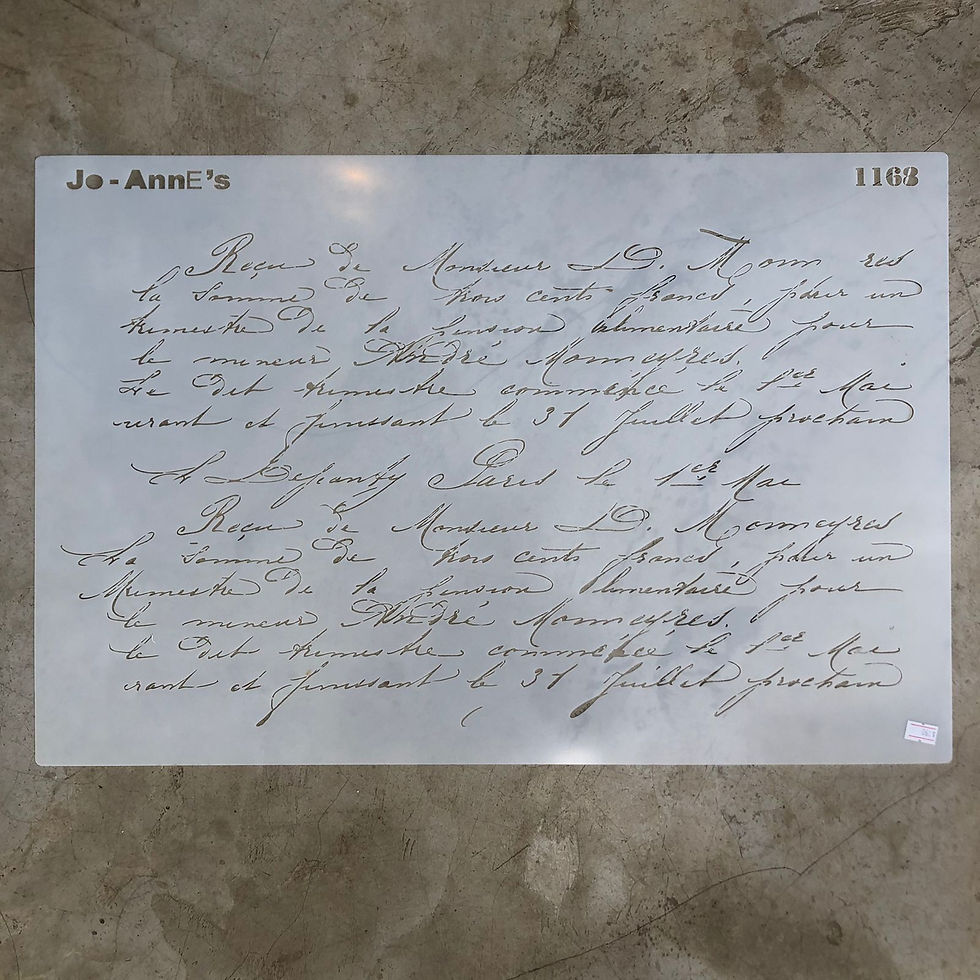 Jo-AnnE's 1168
Reçu de Monsieur D. Monn res
la somme de trois cents francs, pour un
trimestre de la pension alimentaire pour
le mineur André Monneyres.
Le dit trimestre commence le 1er Mai
urant et finissant le 31 Juillet prochain
Paris le 1er Mai
Reçu de Monsieur D. Monneyres
La somme de trois cents francs, pour un
de la pension limentaire pour
le mineur André Monneyres.
le dit trimestre commence le 1er Mai
rant et finissant le 31 Juillet prochain